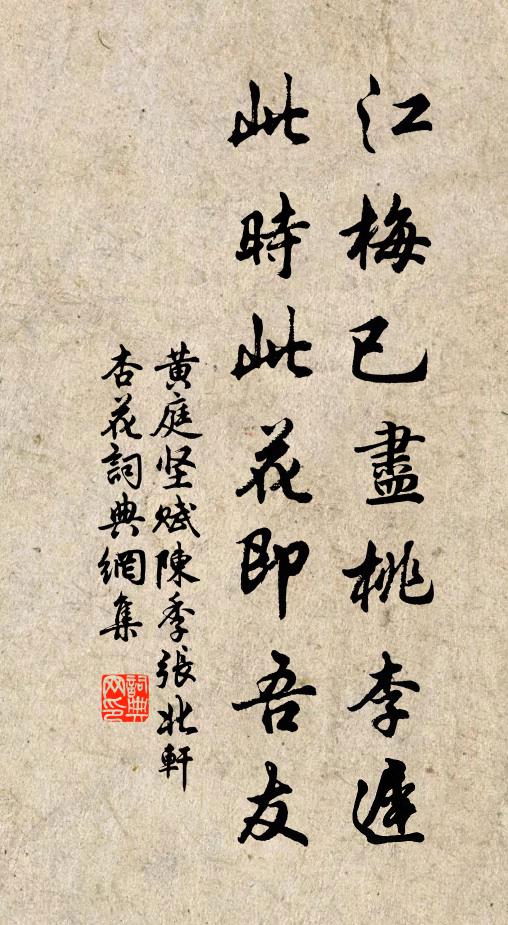 江梅已盡桃李遲
此時此花即吾友
黄庭坚賦陳季張北軒
杏花詞典網集
詞典網印